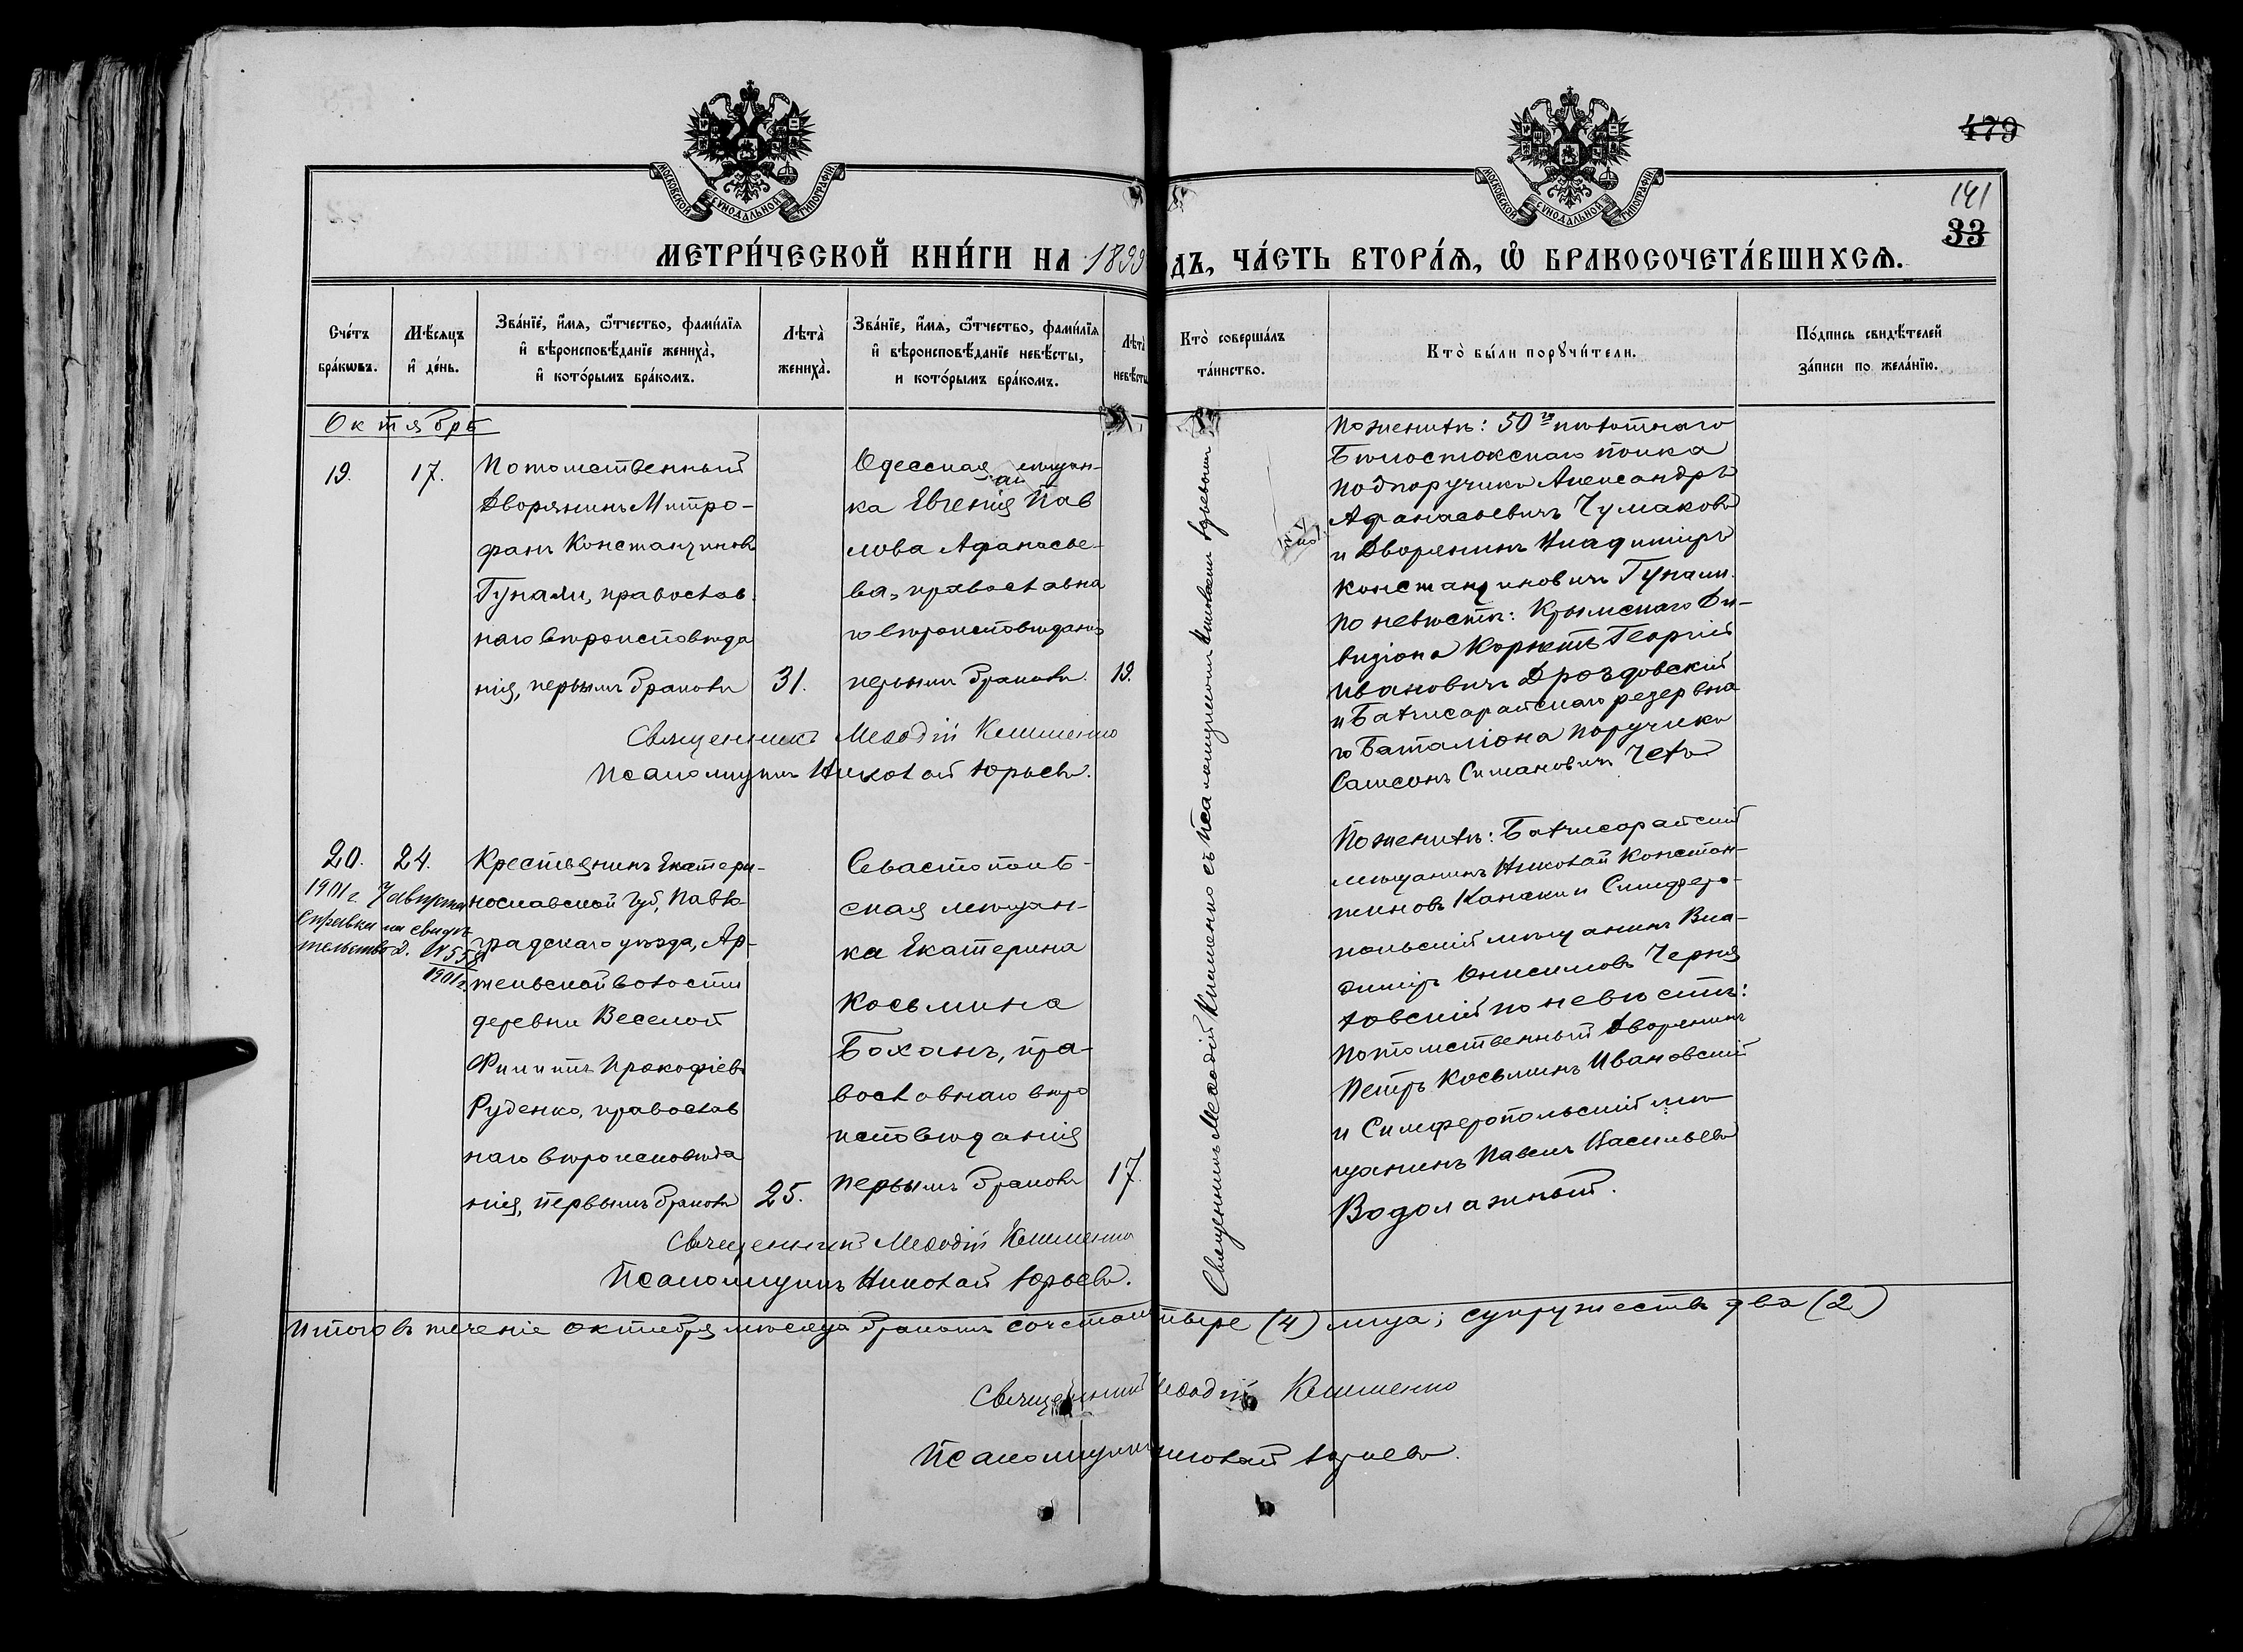 479
141
33
МОСКОВСКОЙ СѴНОДАЛЬНОЙ ТИПОГРАФІИ
МОСКОВСКОЙ СѴНОДАЛЬНОЙ ТИПОГРАФІИ
МЕТРИ́ЧЕСКОЙ КНИ́ГИ НА 1899
ДЪ, ЧА́СТЬ ВТОРА́Ѧ, Ѽ БРАКОСОЧЕТА́ВШИХСѦ.
Сче́тъ
бра́кѡвъ.
Мѣ́сѧцъ
и҆ де́нь.
Зва́нїе, и҆́мѧ, ѻ҆́тчество, фами́лїѧ
и҆ вѣроисповѣ́данїе жениха̀,
и҆ кото́рымъ бра́комъ.
Лѣта̀
жениха̀.
Зва́нїе, и҆́мѧ, ѻ҆́тчество, фами́лїѧ
и҆ вѣроисповѣ́данїе невѣ́сты,
и кото́рымъ бра́комъ.
Лѣта̀
невѣ́сты
Кто̀ соверша́лъ
та́инство.
Кто̀ бы́ли порꙋчи́тели.
По́дпись свидѣ́телей
за́писи по жела́нїю.
Октябрь
19.
17.
Потомственный
Дворянинъ Митро-
фанъ Константиновъ
Гунали, православ
наго вѣроисповѣда
нія, первымъ бракомъ
31.
Одесская мѣщан-
ка Евгенія Пав
лова Афанасье-
ва, православна
го вѣроисповѣданія
первымъ бракомъ.
19.
Священникъ Меѳодій Клименко
Псаломщикъ Николай Юрьевъ.
По женихѣ: 50го пѣхотнаго
Бѣлостокскаго полка
подпоручикъ Александръ
Афанасьевичъ Чумаковъ
и Дворянинъ Владиміръ
Константиновичъ Гунали.
по невѣстѣ: Крымскаго Ди-
визіона Корнетъ Георгій
Ивановичъ Дроздовскій
и Бахчисарайскаго резервна
го Баталіона поручикъ
Самсонъ Симановичъ Чехъ
20.
24.
Крестьянинъ Екатери-
нославской Губ, Павло-
градскаго уѣзда, Ар-
тельской волости
деревни Веселой
Филиппъ Прокофіевъ
Руденко, православ
наго вѣроисповѣда
нія, первымъ бракомъ
25.
1901 г. 7 августа
справка на свидѣ
тельство д. № 558
1901 г.
Севастополь-
ская мѣщан-
ка Екатерина
Косьмина
Боханъ, пра-
вославнаго вѣро
исповѣданія
первымъ бракомъ
17.
Священникъ Меѳодій Клименко
Псаломщикъ Николай Юрьевъ.
По женихѣ: Бахчисарайскій
мѣщанинъ Николай Констан-
тиновъ Канаки и Симферо-
польскій мѣщанинъ Вла-
диміръ Онисимовъ Черня
ховскій по невѣстѣ:
Потомственный Дворянинъ
Петръ Косьминъ Ивановскій
и Симферопольскій мѣ
щанинъ Павелъ Васильевъ
Водолажный.
Священникъ Меѳодій Клименко съ Псаломщикомъ Николаемъ Юрьевымъ
Итого въ теченіе октября мѣсяца бракомъ сочеталось четыре (4) лица; супружествъ два (2)
Священникъ Меѳодій Клименко
Псаломщикъ Николай Юрьевъ.